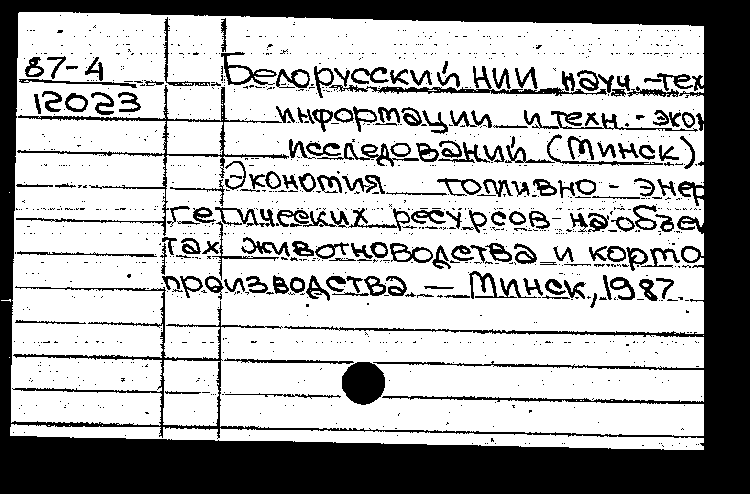 87-4 Белорусский НИИ науч.-тех
12023 информации и техн.-экон
исследований (Минск).
Экономия топливно-энер
гетических ресурсов на объек
тах животноводства и кормо
производства. — Минск, 1987.